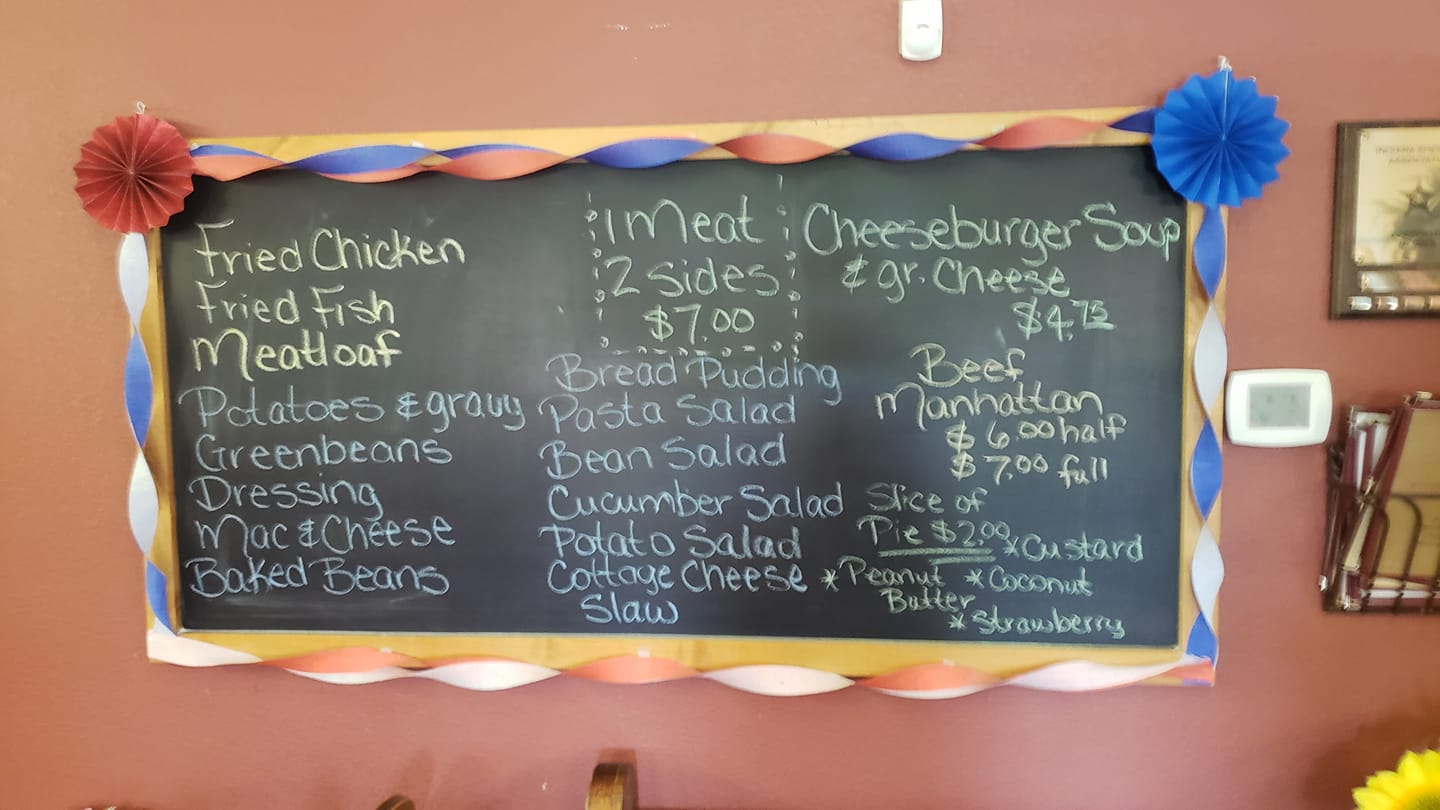 Fried Chicken
Fried Fish
Meatloaf
Potatoes & gravy
Greenbeans
Dressing
Mac & Cheese
Baked Beans
1 Meat
2 Sides
$7.00
Bread Pudding
Pasta Salad
Bean Salad
Cucumber Salad
Potato Salad
Cottage Cheese
Slaw
Cheeseburger Soup
& gr. Cheese
$4.75
Beef
Manhattan
$6.00 half
$7.00 full
Slice of
Pie $2.00
*Custard
*Peanut Butter
*Coconut
*Strawberry
INDIANA